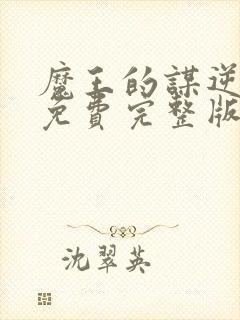 魔王的謀逆
免費完整版
沈翠英